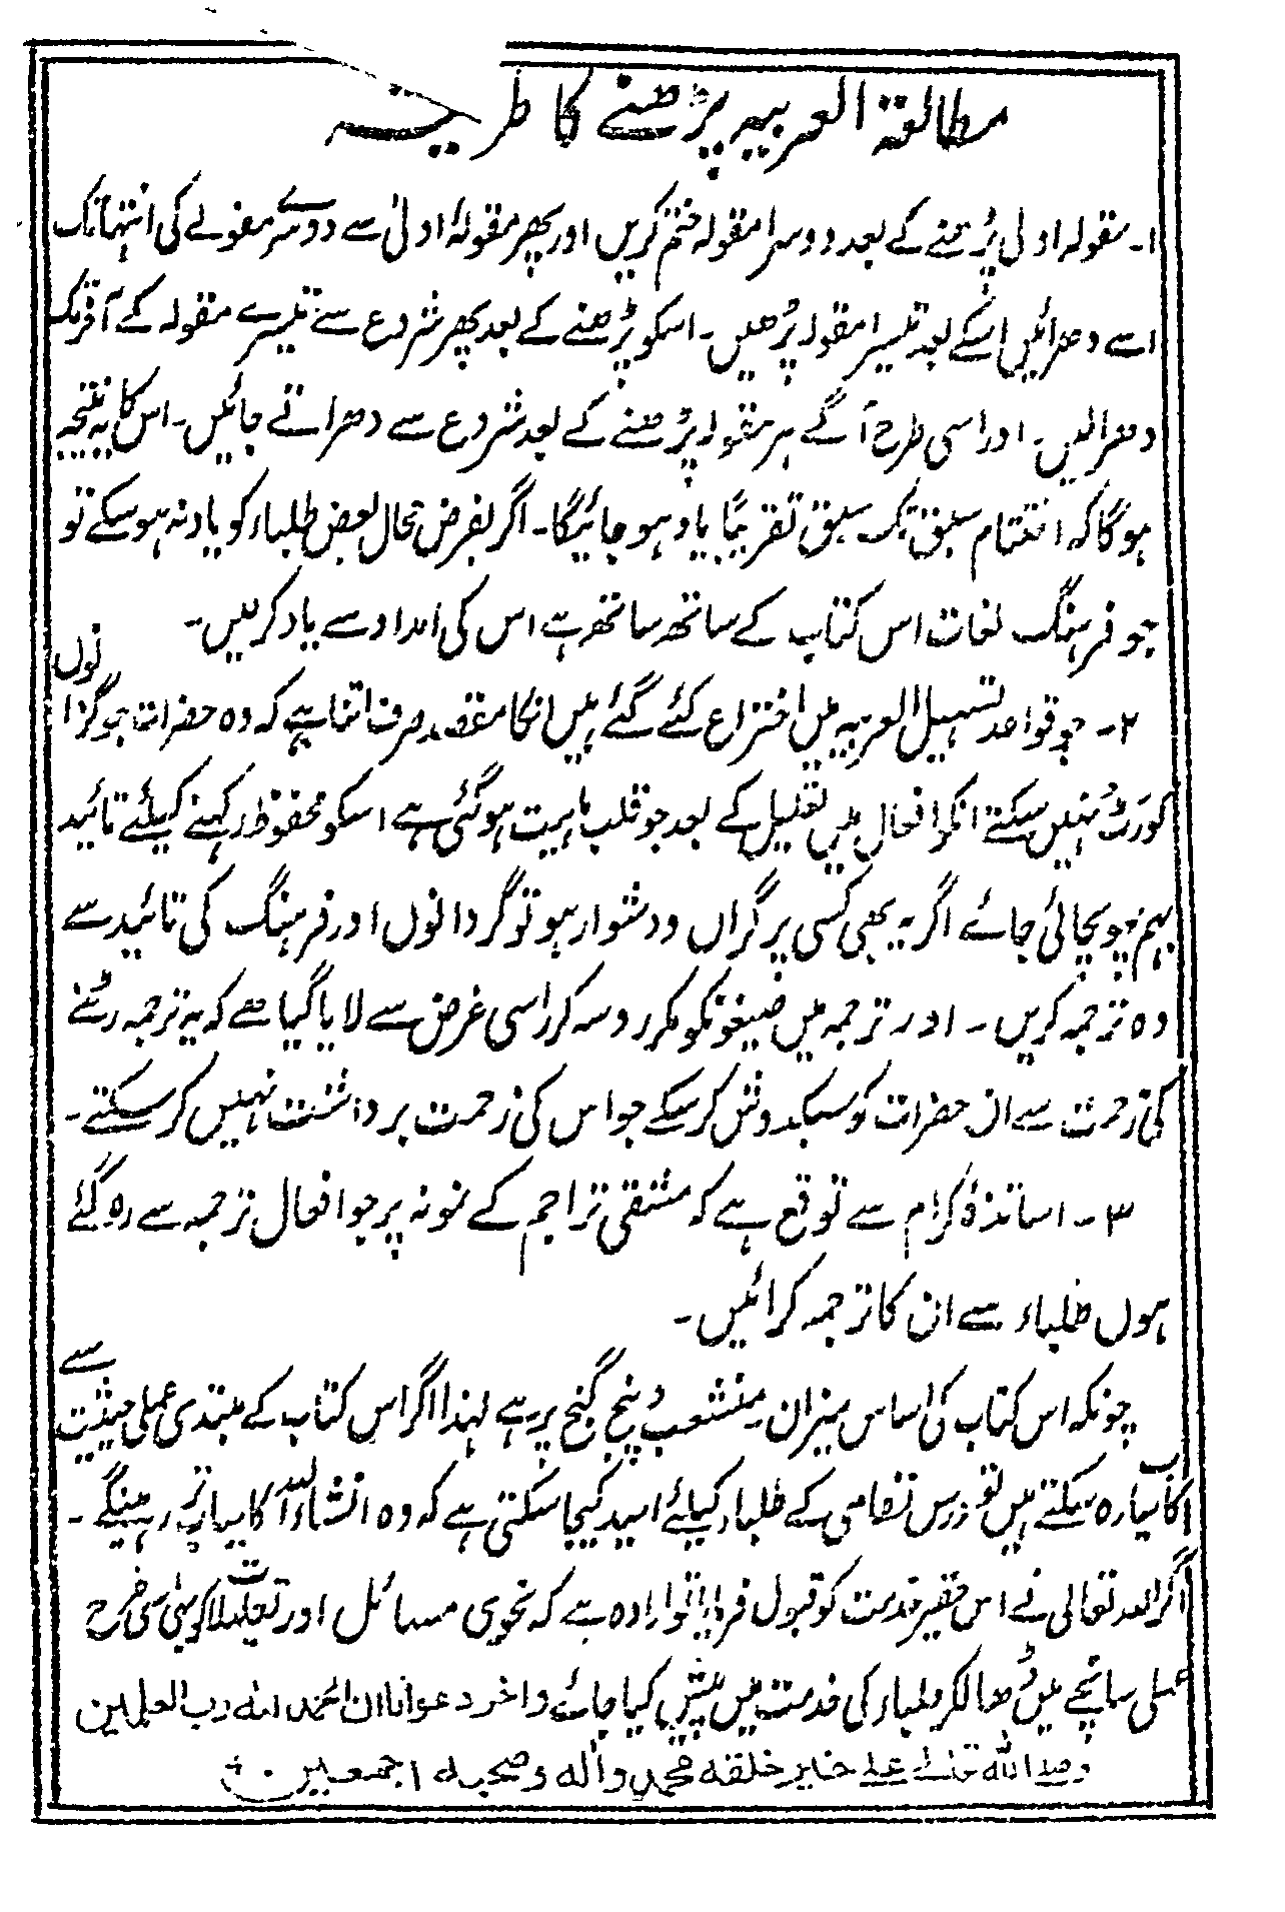 مطالعۃ العربیہ پڑھنے کا طریقہ
۱۔ مقولہ اولیٰ پڑھنے کے بعد دوسرا مقولہ ختم کریں اور پھر مقولۂ اولیٰ سے دوسرے مقولے کی انتہا تک
اسے دھرائیں اسکے بعد تیسرا مقولہ پڑھیں۔ اسکو پڑھنے کے بعد پھر شروع سے تیسرے مقولہ کے آخر تک
دھرالیں۔ اور اسی طرح آگے ہر مقولہ پڑھنے کے بعد شروع سے دھراتے جائیں۔ اس کا یہ نتیجہ
ہوگا کہ اختتام سبق تک سبق تقریباً یاد ہو جائیگا۔ اگر بفرض محال بعض طلباء کو یاد نہ ہو سکے تو
جو فرہنگ لغات اس کتاب کے ساتھ ساتھ ہے اس کی امداد سے یاد کرلیں۔
۲۔ جو قواعد تسہیل العربیہ میں اختراع کئے گئے ہیں انکا مقصد صرف اتنا ہے کہ وہ حضرات جو گردانوں
کو رٹ نہیں سکتے انکو افعال میں تعلیل کے بعد جو قلب ماہیت ہوگئی ہے اسکو محفوظ رکہنے کیلئے تائید
بہم پہونچائی جائے اگر یہ بھی کسی پر گراں و دشوار ہو تو گردانوں اور فرہنگ کی تائید سے
وہ ترجمہ کریں۔ اور ترجمہ میں صیغونکو مکرر و سہ کرر اسی غرض سے لایا گیا ھے کہ یہ ترجمہ رٹنے
کی زحمت سے ان حضرات کو سبکدوش کرسکے جو اس کی زحمت برداشت نہیں کر سکتے۔
۳۔ اساتذۂ کرام سے توقع ہے کہ مشقی تراجم کے نمونہ پر جو افعال ترجمہ سے رہ گئے
ہوں طلباء سے ان کا ترجمہ کرائیں۔
چونکہ اس کتاب کی اساس میزان۔ منشعب و پنج گنج پر ہے لہذا اگر اس کتاب کے مبتدی عملی حیثیت سے
کامیاب رہ سکتے ہیں تو درس نظامی کے طلباء کیلئے امید کیجا سکتی ہے کہ وہ انشاء اللہ کامیاب تر رہینگے۔
اگر اللہ تعالی نے اس حقیر خدمت کو قبول فرمایا تو ارادہ ہے کہ نحوی مسائل اور تعلیلات کو بھی اسی طرح
عملی سانچے میں ڈھالکر طلباء کی خدمت میں پیش کیا جائے واخر دعوانا ان الحمد للہ رب العلمین
وصلے اللہ تعالے علے خیر خلقہ محمد وآلہ وصحبہ اجمعین۔